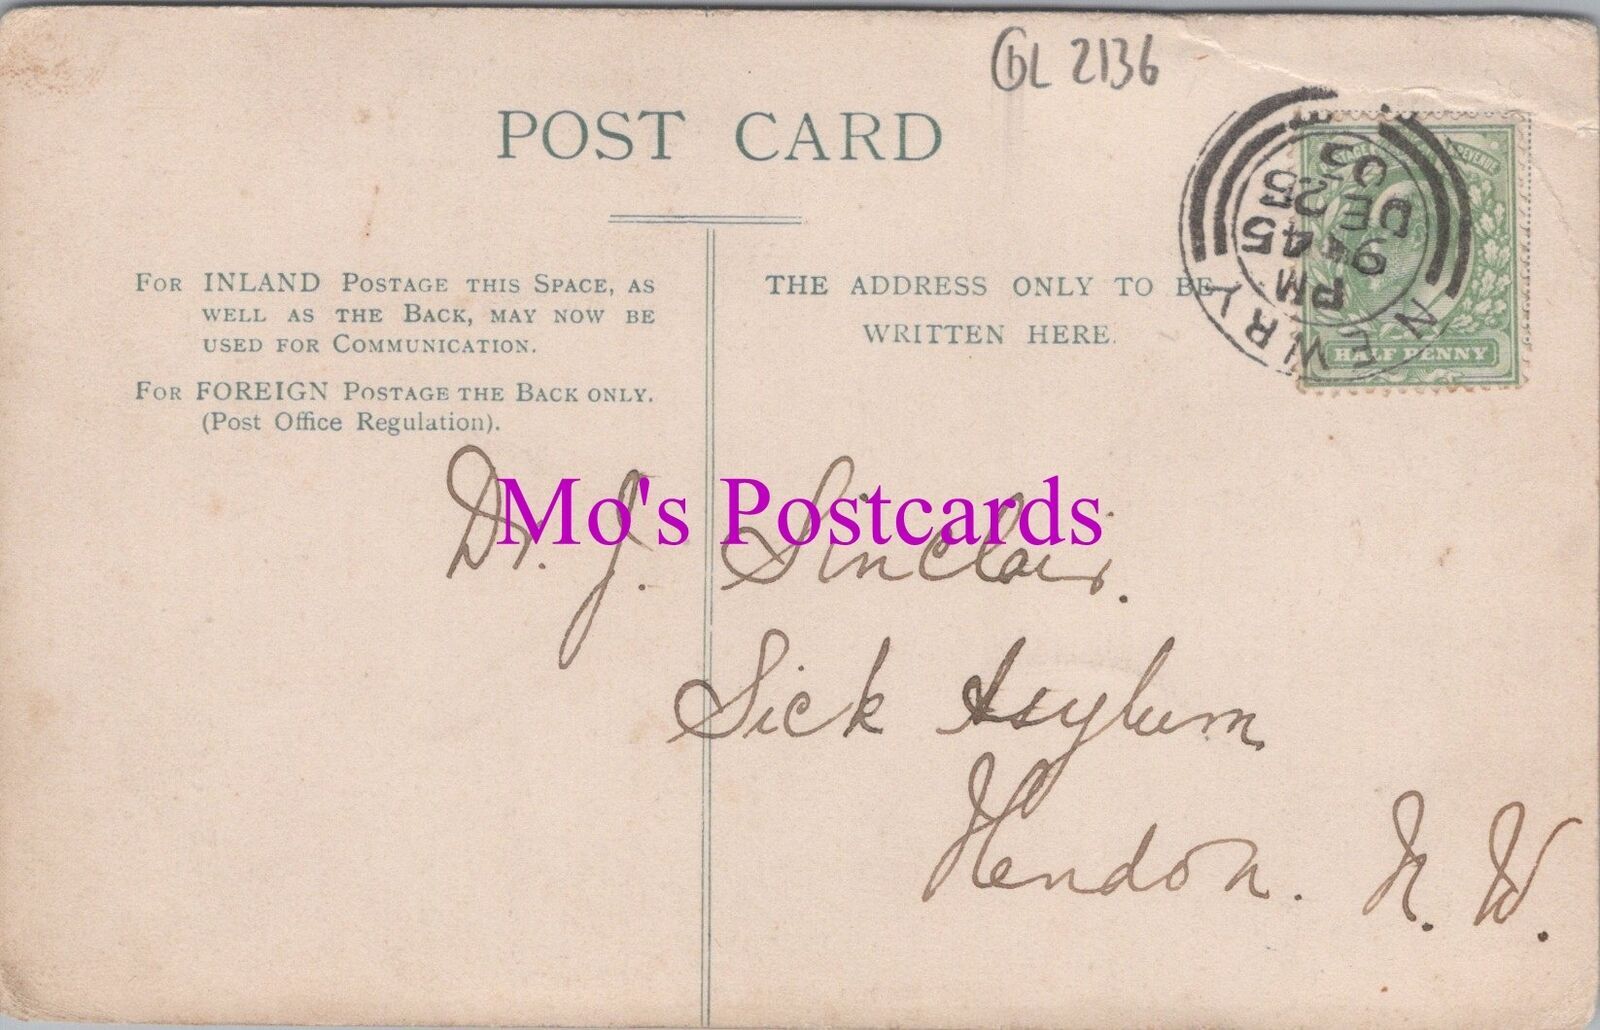 GL 2136
POST CARD
FOR INLAND POSTAGE THIS SPACE, AS
WELL AS THE BACK, MAY NOW BE
USED FOR COMMUNICATION.
FOR FOREIGN POSTAGE THE BACK ONLY.
(Post Office Regulation).
THE ADDRESS ONLY TO BE
WRITTEN HERE.
NEWRY
9 45 PM
DE 25
03
POSTAGE REVENUE
HALF PENNY
Mo's Postcards
Dr. J. Sinclair.
Sick Asylum
Hendon. N. W.